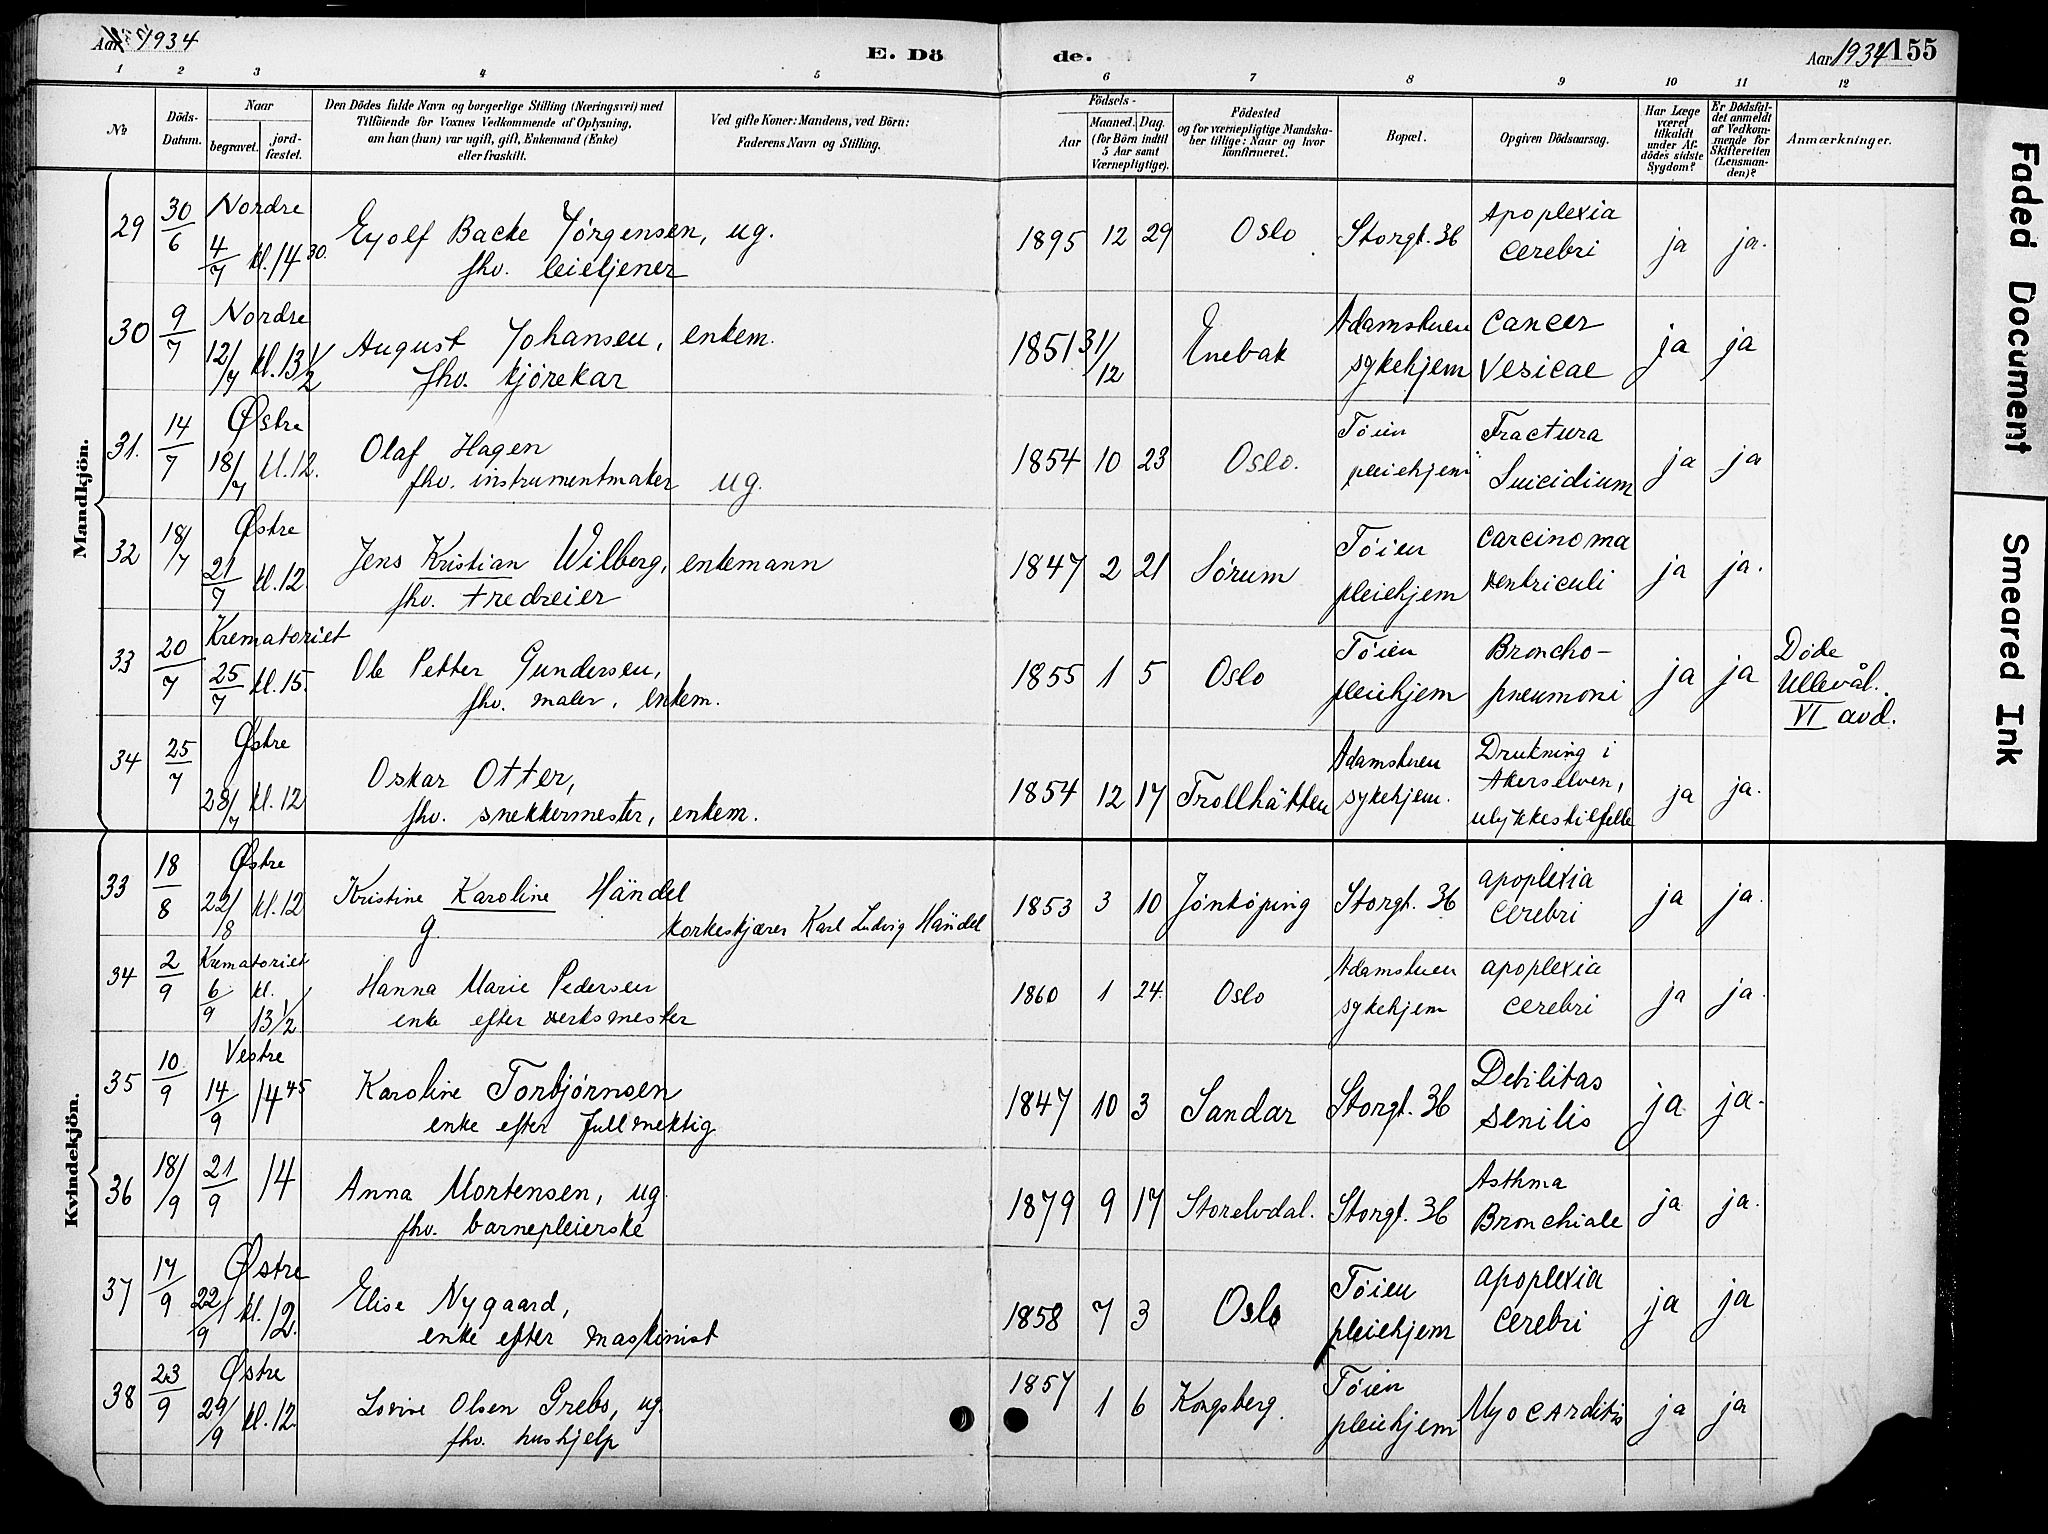 Aar 1934
E. Dö
de.
Aar 1934 155
1 2 3 4 5 6 7 8 9 10 11 12
No
Döds-Datum.
Naar
begravet.
jord-fæstet.
Den Dödes fulde Navn og borgerlige Stilling (Næringsvei) med
Tilföiende for Voxnes Vedkommende af Oplysning,
om han (hun) var ugift, gift, Enkemand (Enke)
eller fraskilt.
Ved gifte Koner: Mandens, ved Börn:
Faderens Navn og Stilling.
Födsels-
Aar
Maaned. Dag.
(for Börn indtil
5 Aar samt
Værnepligtige).
Födested
og for værnepligtige Mandska-
ber tillige: Naar og hvor
konfirmeret.
Bopæl.
Opgiven Dödsaarsag.
Har Læge
været
tilkaldt
under Af-
dödes sidste
Sygdom?
Er Dödsfal-
det anmeldt
af Vedkom-
mende for
Skifteretten
(Lensman-
den)?
Anmærkninger.
Mandkjön.
29 30/6 Nordre 4/7 kl. 14 30. Eyolf Backe Jørgensen, ug. 1895 12 29 Oslo Storgt. 36 Apoplexia ja ja.
fhv. leietjener cerebri
30 9/7 Nordre 12/7 kl. 13 1/2 August Johansen, enkem. 1851 31/12 Enebak Adamstuen cancer ja ja
fhv. kjørekar sykehjem vesicae
31. 14/7 Østre 18/7 kl. 12. Olaf Hagen 1854 10 23 Oslo. Tøien Fractura ja ja
fhv. instrumentmaker ug. pleiehjem Suicidium
32 18/7 Østre 21/7 kl. 12. Jens Kristian Wilberg, enkemann 1847 2 21 Sørum Tøien Carcinoma ja ja.
fhv. tredreier pleiehjem ventriculi
33 20/7 Krematoriet 25/7 kl. 15. Ole Petter Gundersen, 1855 1 5 Oslo Tøien Broncho- ja ja Døde
fhv. maler, enkem. pleiehjem pneumoni Ullevål.
VI avd.
34 25/7 Østre 28/7 kl. 12 Oskar Otter, 1854 12 17 Trollhätten Adamstuen Drukning i ja ja.
fhv. snekkermester, enkem. sykehjem. Akerselven,
ulykkestilfelle
Kvindekjön.
33 18/8 Østre 22/8 kl. 12 Kristine Karoline Händel 1853 3 10 Jönköping Storgt. 36 apoplexia ja ja.
g. korkeskjærer Karl Ludvig Händel cerebri
34 2/9 Krematoriet 6/9 kl. 13 1/2 Hanna Marie Pedersen 1860 1 24. Oslo Adamstuen apoplexia ja ja.
enke efter verksmester sykehjem cerebri
35 10/9 Vestre 14/9 14 45 Karoline Torbjørnsen 1847 10 3 Sandar Storgt. 36 Debilitas ja ja.
enke efter fullmektig senilis
36 18/9 21/9 14 Anna Mortensen, ug. 1879 9 17 Storelvdal. Storgt. 36 Asthma ja ja.
fhv. barnepleierske Bronchiale
37 17/9 Østre 22/9 kl. 12. Elise Nygaard, 1858 7 3 Oslo Tøien apoplexia ja ja
enke efter maskinist pleiehjem cerebri
38 23/9 Østre 29/9 kl. 12. Lovise Olsen Grebo, ug. 1857 1 6 Kongsberg. Tøien Myocarditis ja ja
fhv. hushjelp pleiehjem
Faded Document
Smeared Ink